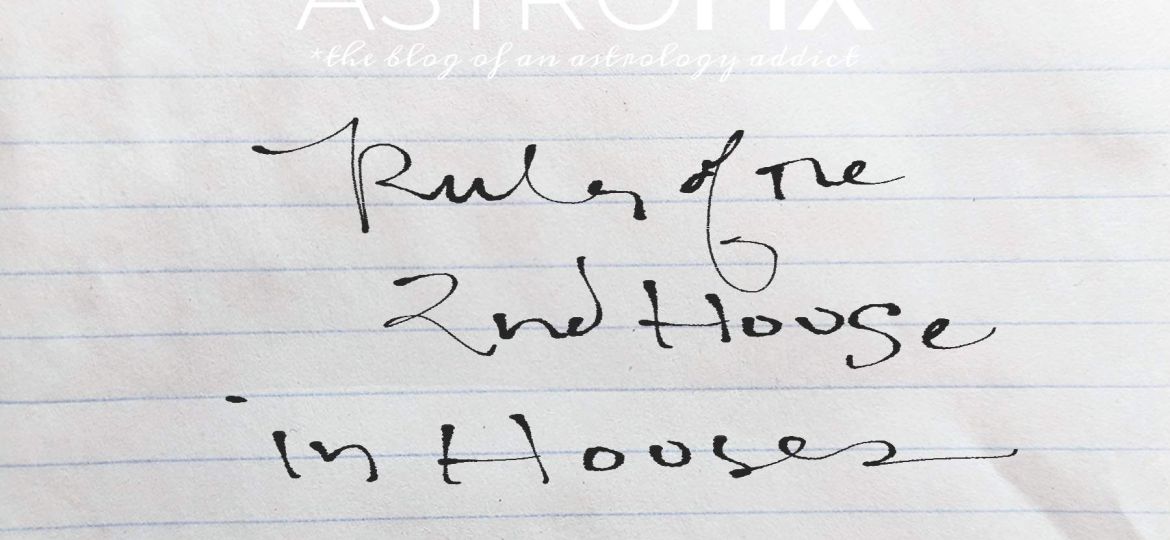 ASTROFIX
*the blog of an astrology addict
Ruler of The
2nd House
in Houses